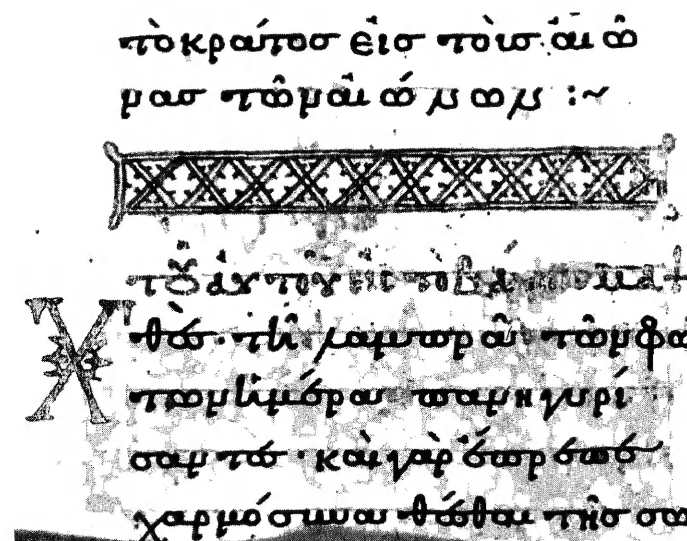 τὸ κράτοσ εἰσ τοὺσ αἰῶ
νασ τῶν αἰώνων :~
τοῦ αὐτοῦ εἰς τὸ βάπτισμα +
Χθὲσ τῆ λαμπρᾶ τῶν φώ
των ἡμέρα πανηγυρί
σαντεσ· καὶ γὰρ ἔπρεπε
χαρμόσυνα θέσθαι τῆσ σω